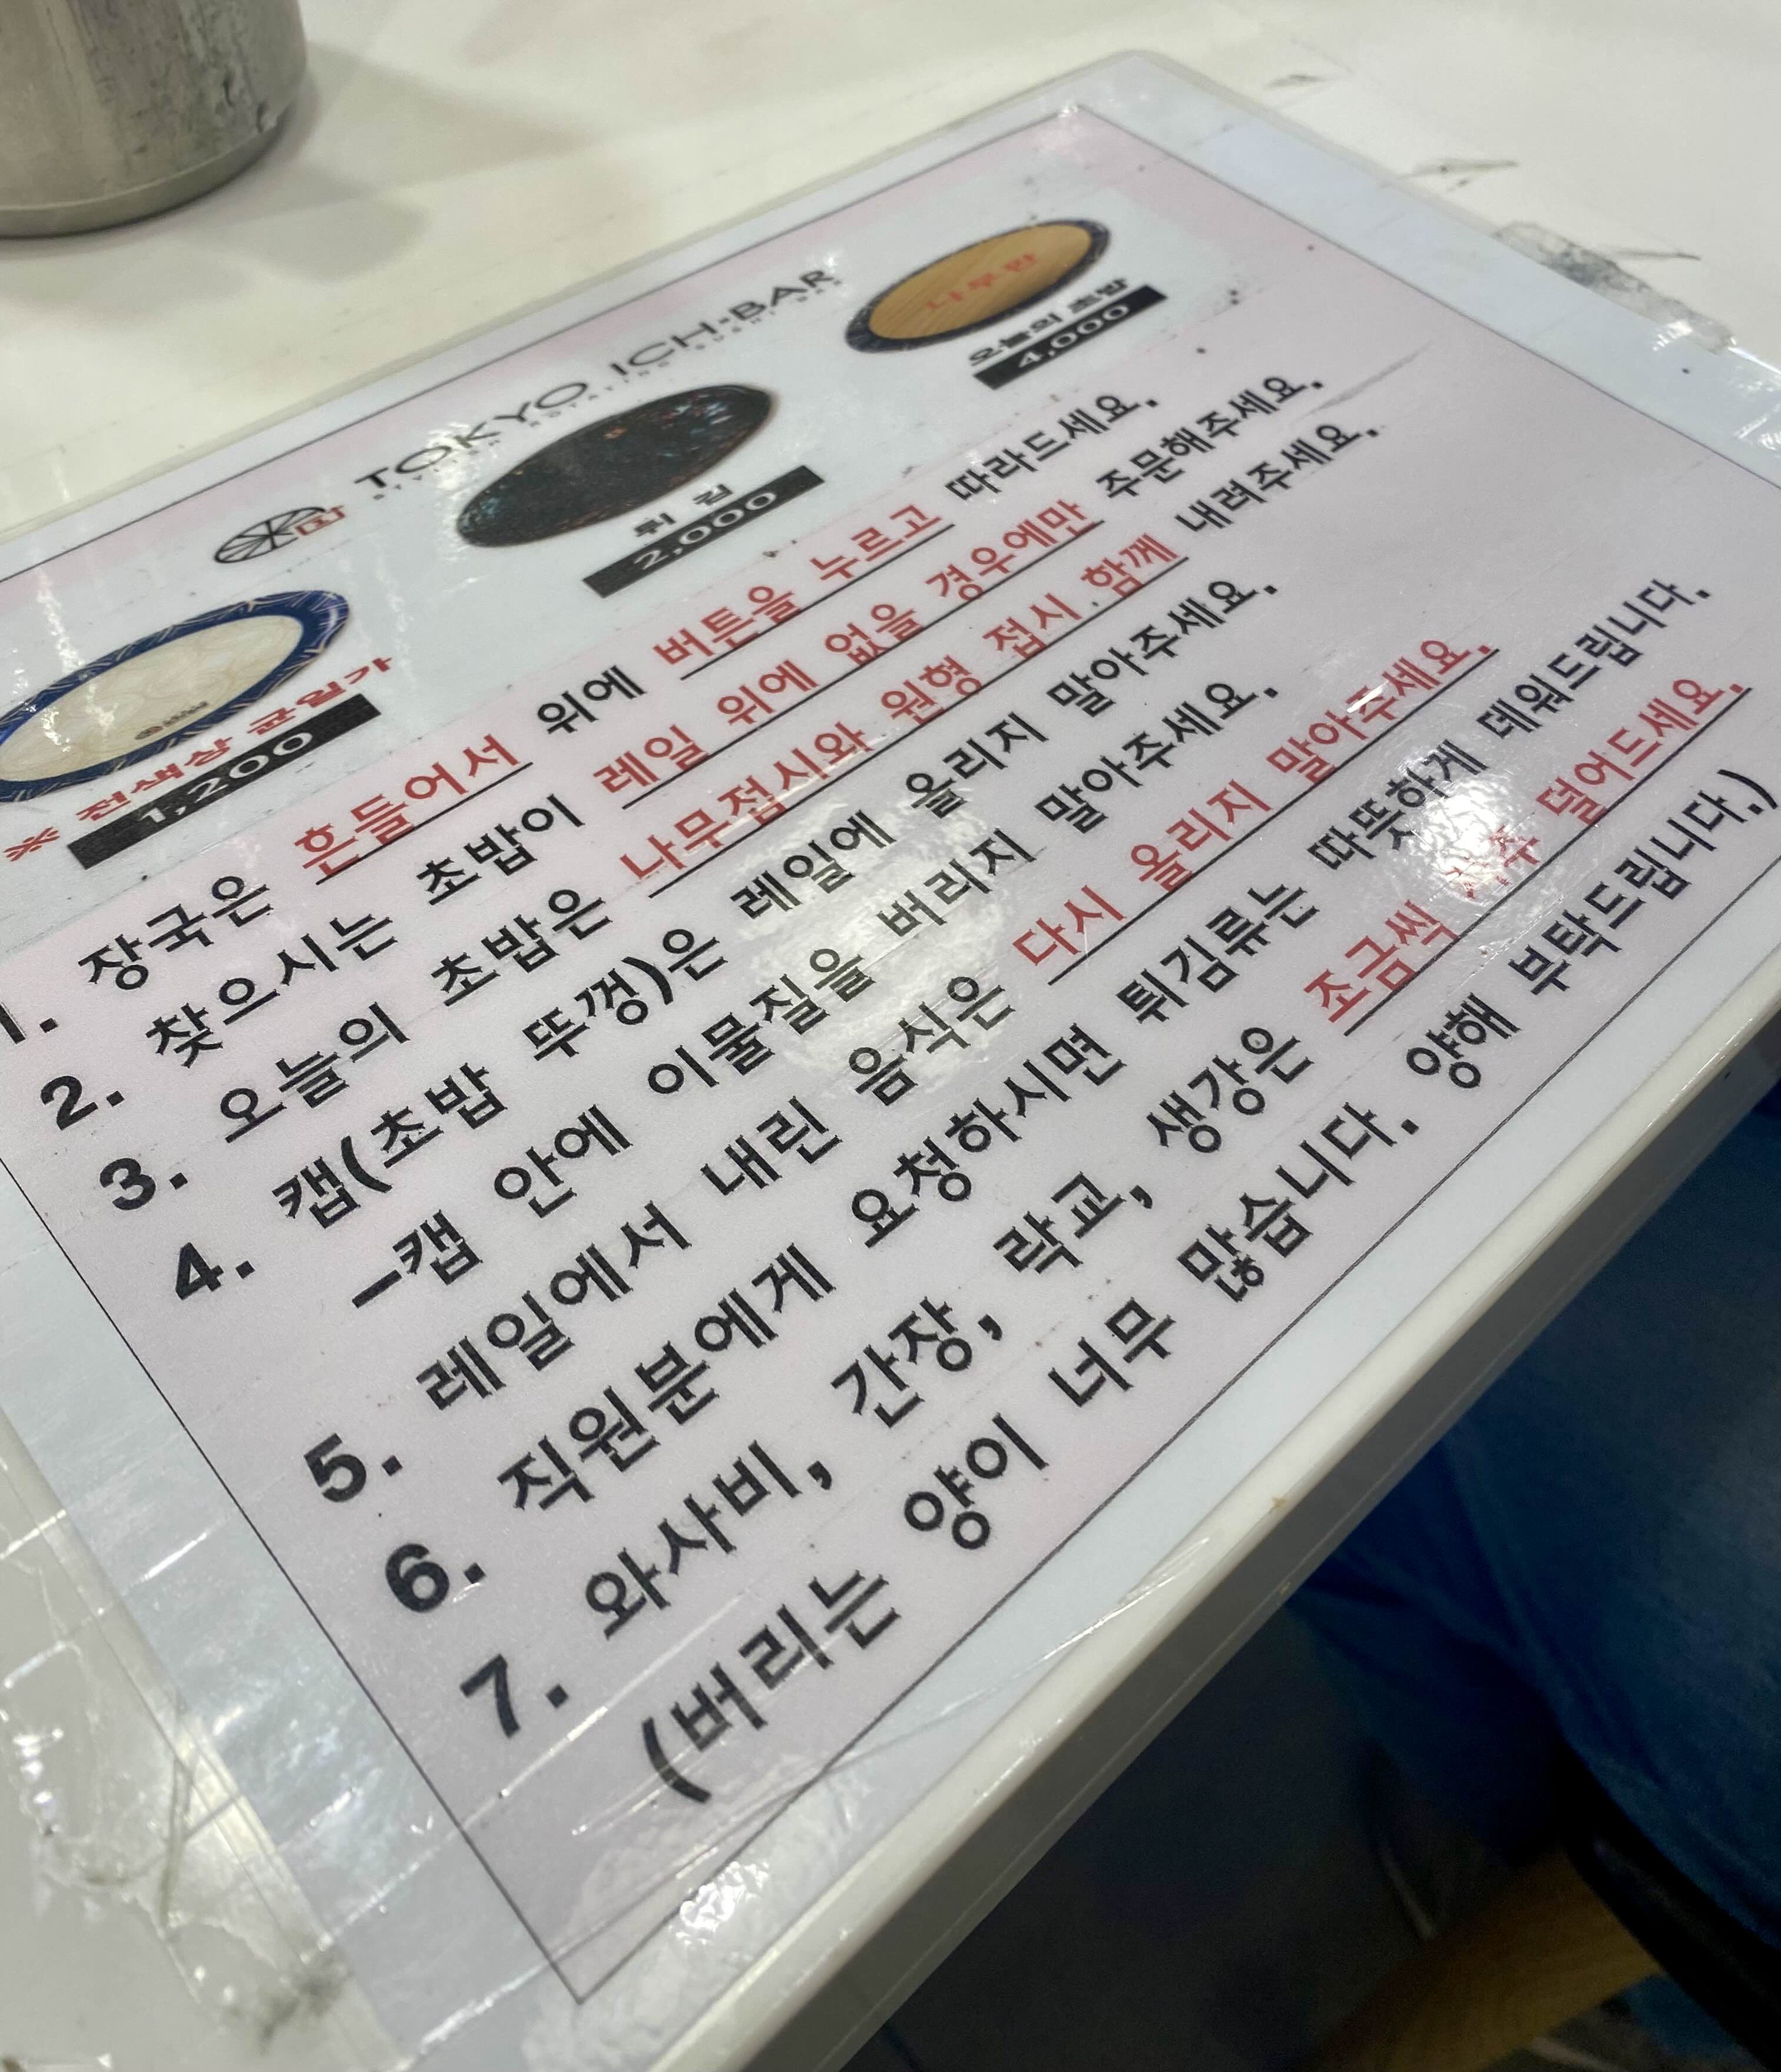 TOKYO ICHI-BAR
※ 전색상 균일가
1,200
튀 김
2,000
나무판
오늘의 초밥
4,000
1. 장국은 흔들어서 위에 버튼을 누르고 따라드세요.
2. 찾으시는 초밥이 레일 위에 없을 경우에만 주문해주세요.
3. 오늘의 초밥은 나무접시와 원형 접시 함께 내려주세요.
4. 캡(초밥 뚜껑)은 레일에 올리지 말아주세요.
-캡 안에 이물질을 버리지 말아주세요.
5. 레일에서 내린 음식은 다시 올리지 말아주세요.
6. 직원분에게 요청하시면 튀김류는 따뜻하게 데워드립니다.
7. 와사비, 간장, 락교, 생강은 조금씩 자주 덜어드세요.
(버리는 양이 너무 많습니다. 양해 부탁드립니다.)